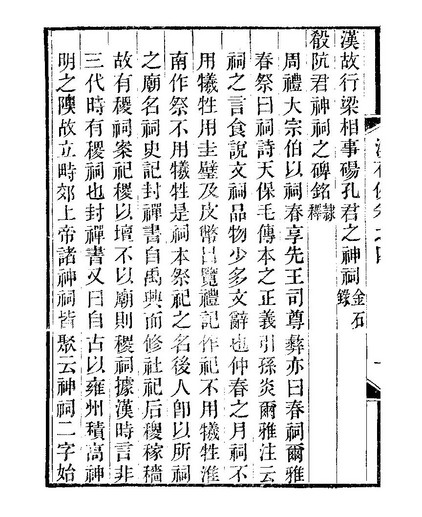 漢故行梁相事碭孔君之神祠金石錄
殽阬君神祠之碑銘隸釋
周禮大宗伯以祠春享先王司尊彝亦曰春祠爾雅
春祭曰祠詩天保毛傳本之正義引孫炎爾雅注云
祠之言食說文祠品物少多文辭也仲春之月祠不
用犧牲用圭璧及皮幣呂覽禮記作祀不用犧牲淮
南作祭不用犧牲是祠本祭祀之名後人卽以所祠
之廟名祠史記封禪書自禹興而修社祀后稷稼穡
故有稷祠案祀稷以壇不以廟則稷祠據漢時言非
三代時有稷祠也封禪書又曰自古以雍州積高神
明之隩故立畤郊上帝諸神祠皆聚云神祠二字始